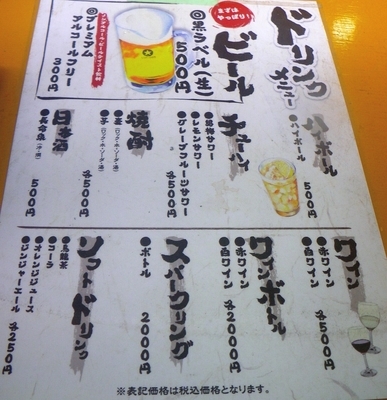 ドリンク
メニュー
まずは
やっぱり!!
ビール
◎黒ラベル(生)
500円
◎プレミアム
アルコールフリー
300円
ハイボール
●ハイボール
500円
チューハイ
●レモンサワー
●グレープフルーツサワー
各500円
焼酎
●麦(ロック・水・ソーダ・湯)
●芋(ロック・水・ソーダ・湯)
各500円
日本酒
500円
ワイン
●赤ワイン
●白ワイン
各500円
ワインボトル
●赤ワイン
●白ワイン
各2000円
スパークリング
●ボトル
2000円
ソフトドリンク
●烏龍茶
●コーラ
●オレンジジュース
●ジンジャーエール
各250円
※表記価格は税込価格となります。